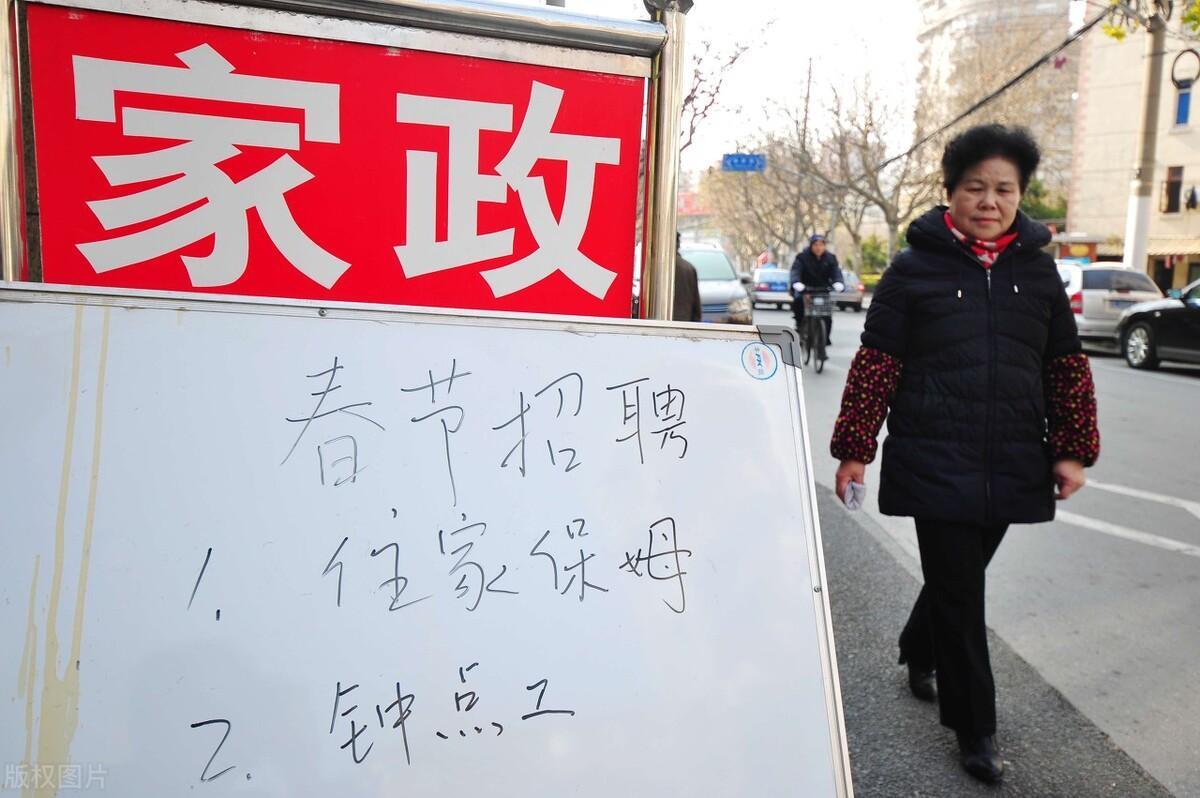 家政
春节招聘
1. 住家保姆
2. 钟点工
版权图片